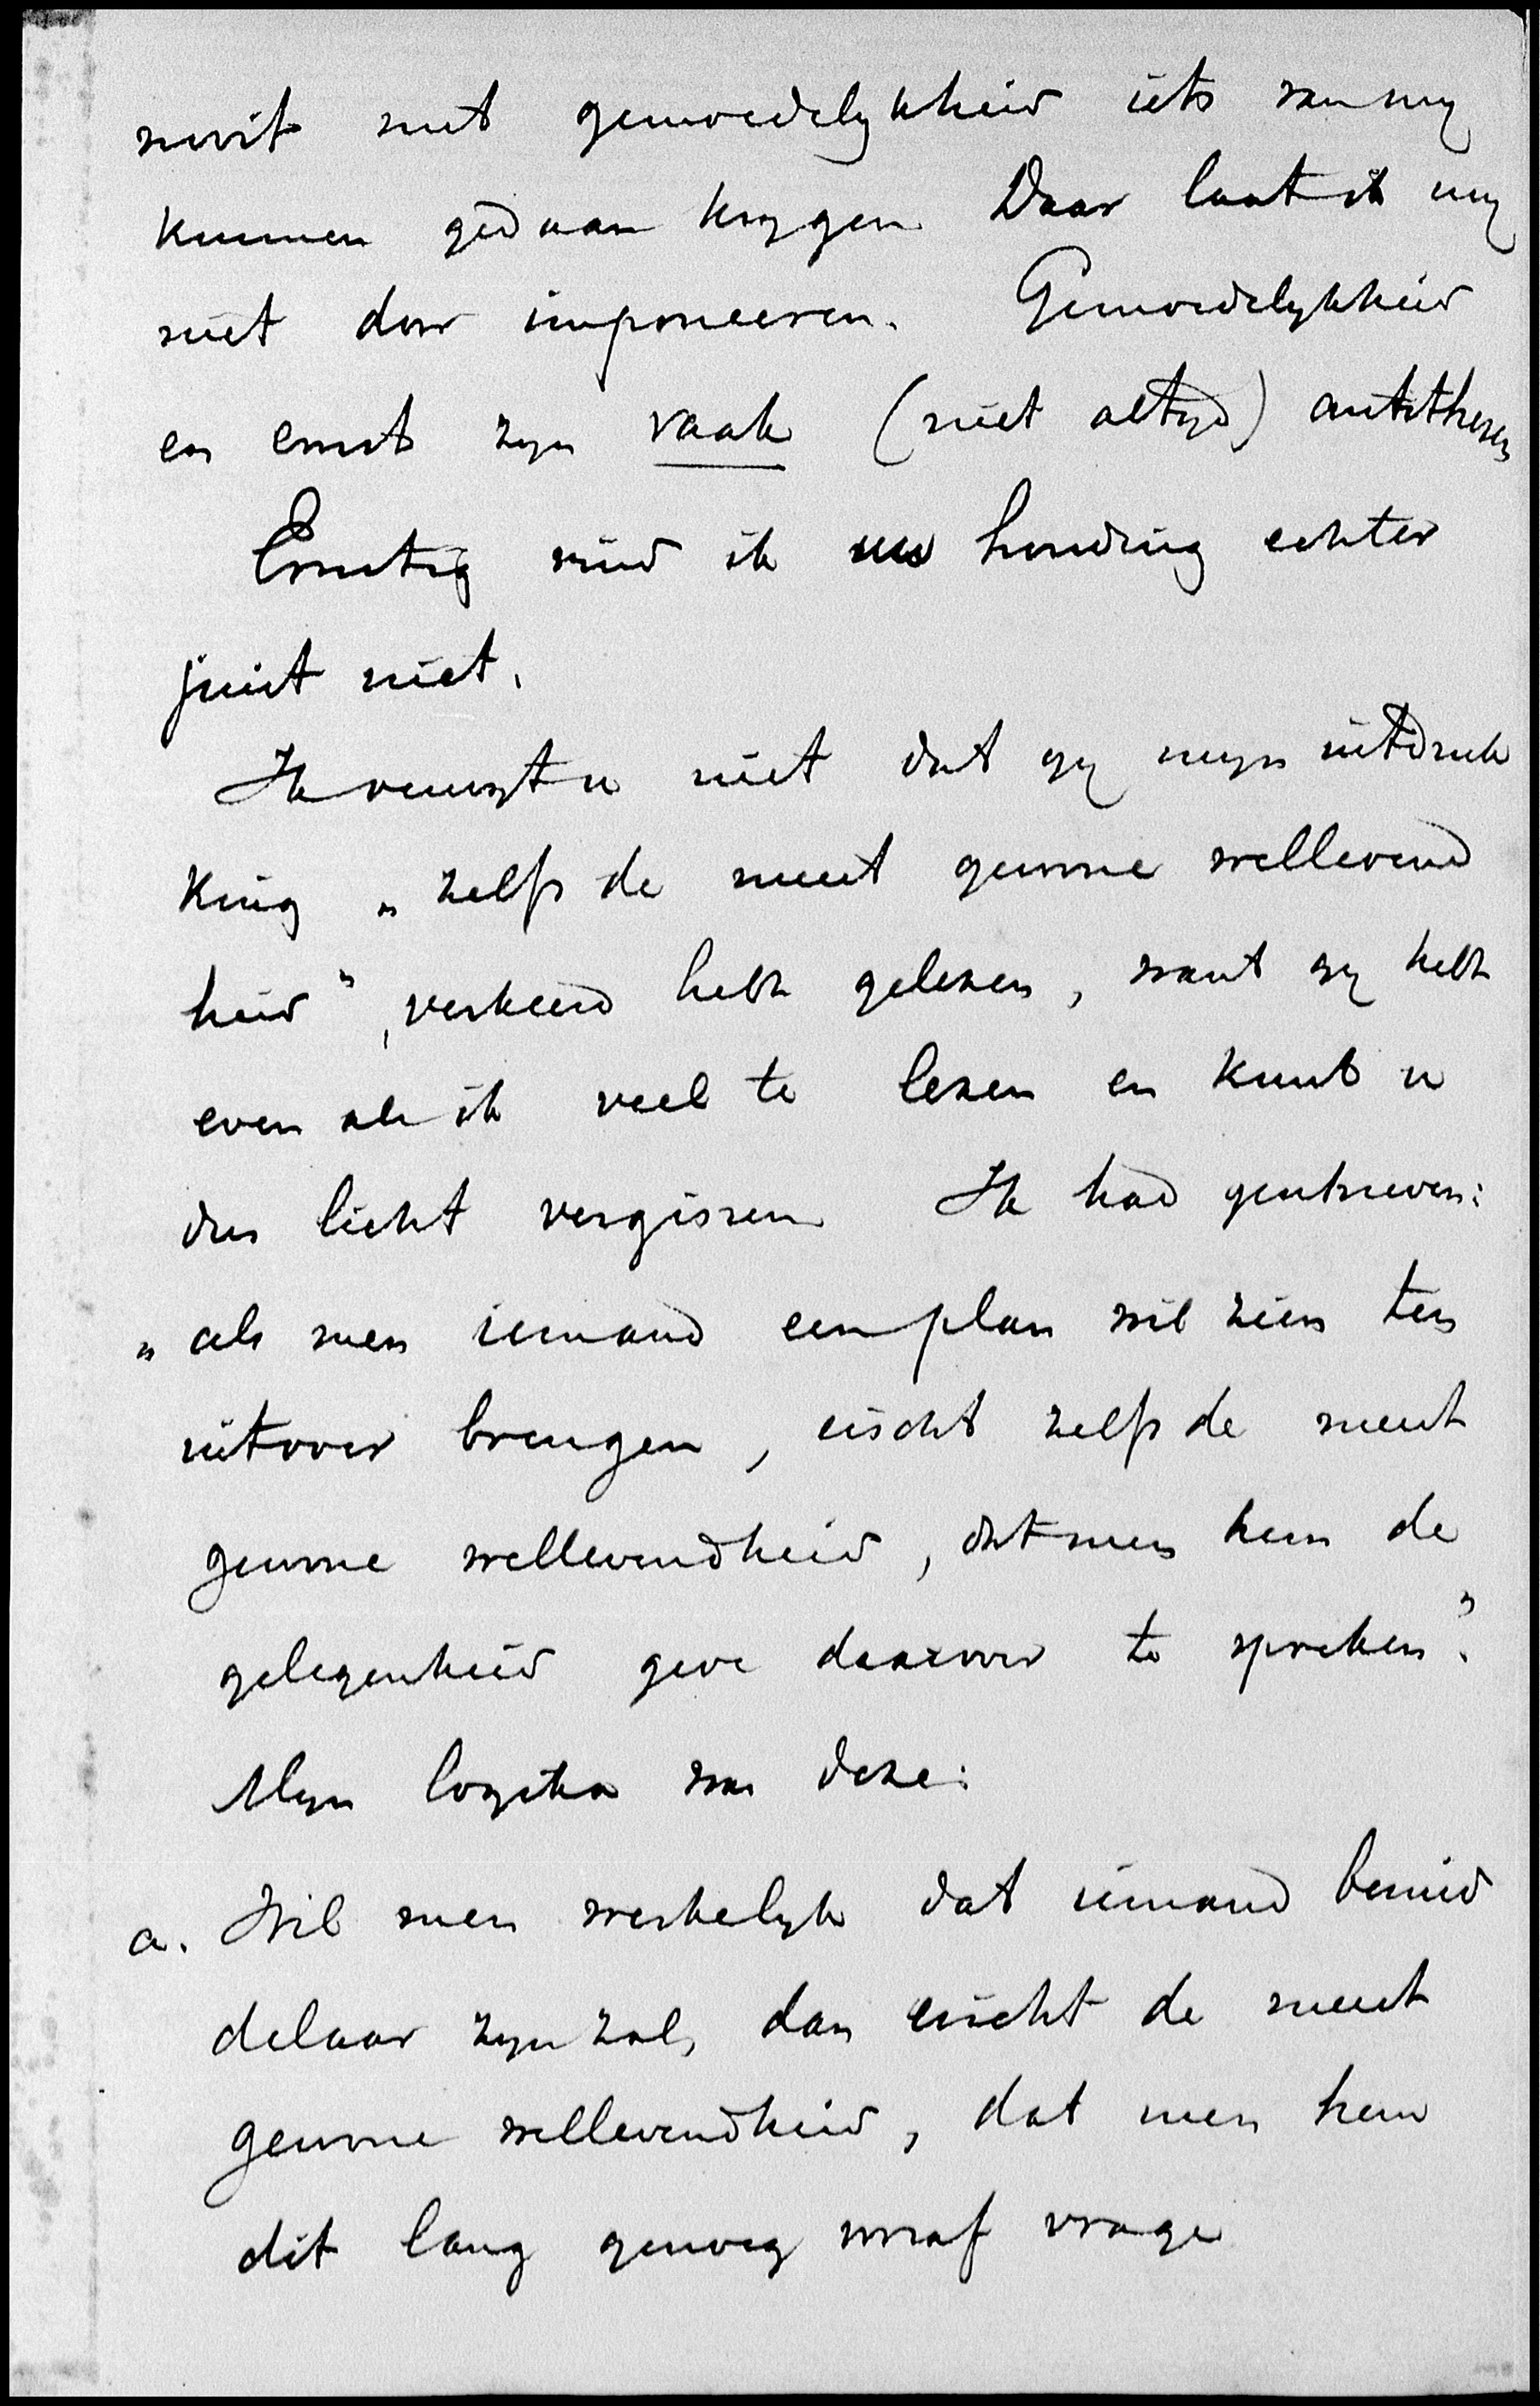 nooit met gemoedelykheid iets van my
kunnen gedaan krygen. Daar laat ik my
niet door imponeeren. Gemoedelykheid
en ernst zyn vaak (niet altyd) antithesen
Ernstig vind ik uw houding echter
juist niet.
Ik verwyt u niet dat gy myn uitdruk
king „zelfs de meest gewone wellevend
heid", verkeerd hebt gelezen, want gy hebt
even als ik veel te lezen en kunt u
dus licht vergissen. Ik had geschreven:
„als men iemand een plan wil zien ten
uitvoer brengen, eischt zelfs de meest
gewone wellevendheid, dat men hem de
gelegenheid geve daarover te spreken".
Myn logika was deze:
a. Wil men werkelyk dat iemand bemid
delaar zyn zal, dan eischt de meest
gewone wellevendheid, dat men hem
dit lang genoeg vooraf vrage